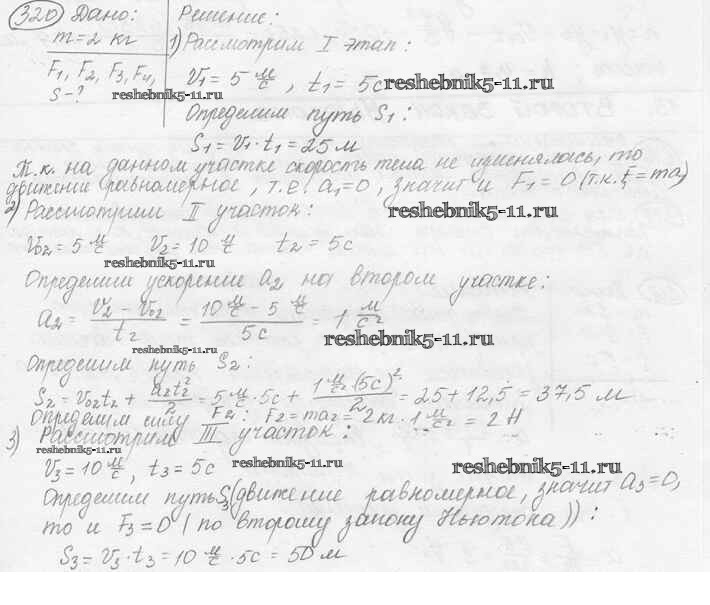 320 Дано: Решение:
m = 2 кг 1) Рассмотрим I этап:
F₁, F₂, F₃, F₄, V₁ = 5 м/с, t₁ = 5с reshebnik5-11.ru
S - ? reshebnik5-11.ru
Определим путь S₁:
S₁ = V₁ · t₁ = 25 м
Т.к. на данном участке скорость тела не изменялась, то
движение равномерное, т.е. a₁ = 0, значит и F₁ = 0 (т.к. F = ma)
2) Рассмотрим II участок: reshebnik5-11.ru
V₀₂ = 5 м/с V₂ = 10 м/с t₂ = 5с
reshebnik5-11.ru
Определим ускорение a₂ на втором участке:
a₂ = (V₂ - V₀₂)/t₂ = (10 м/с - 5 м/с)/5с = 1 м/с²
reshebnik5-11.ru
reshebnik5-11.ru
Определим путь S₂:
S₂ = V₀₂t₂ + a₂t₂²/2 = 5 м/с · 5с + 1 м/с² (5с)²/2 = 25 + 12,5 = 37,5 м
Определим силу F₂: F₂ = ma₂ = 2кг · 1 м/с² = 2 Н
3) Рассмотрим III участок:
reshebnik5-11.ru reshebnik5-11.ru reshebnik5-11.ru
V₃ = 10 м/с, t₃ = 5с
Определим путь S₃ (движение равномерное, значит a₃ = 0,
то и F₃ = 0 (по второму закону Ньютона)):
S₃ = V₃ · t₃ = 10 м/с · 5с = 50 м